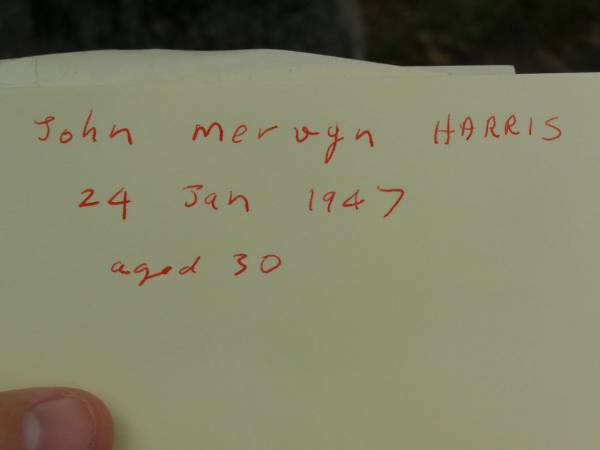 John Mervyn HARRIS
24 Jan 1947
aged 30